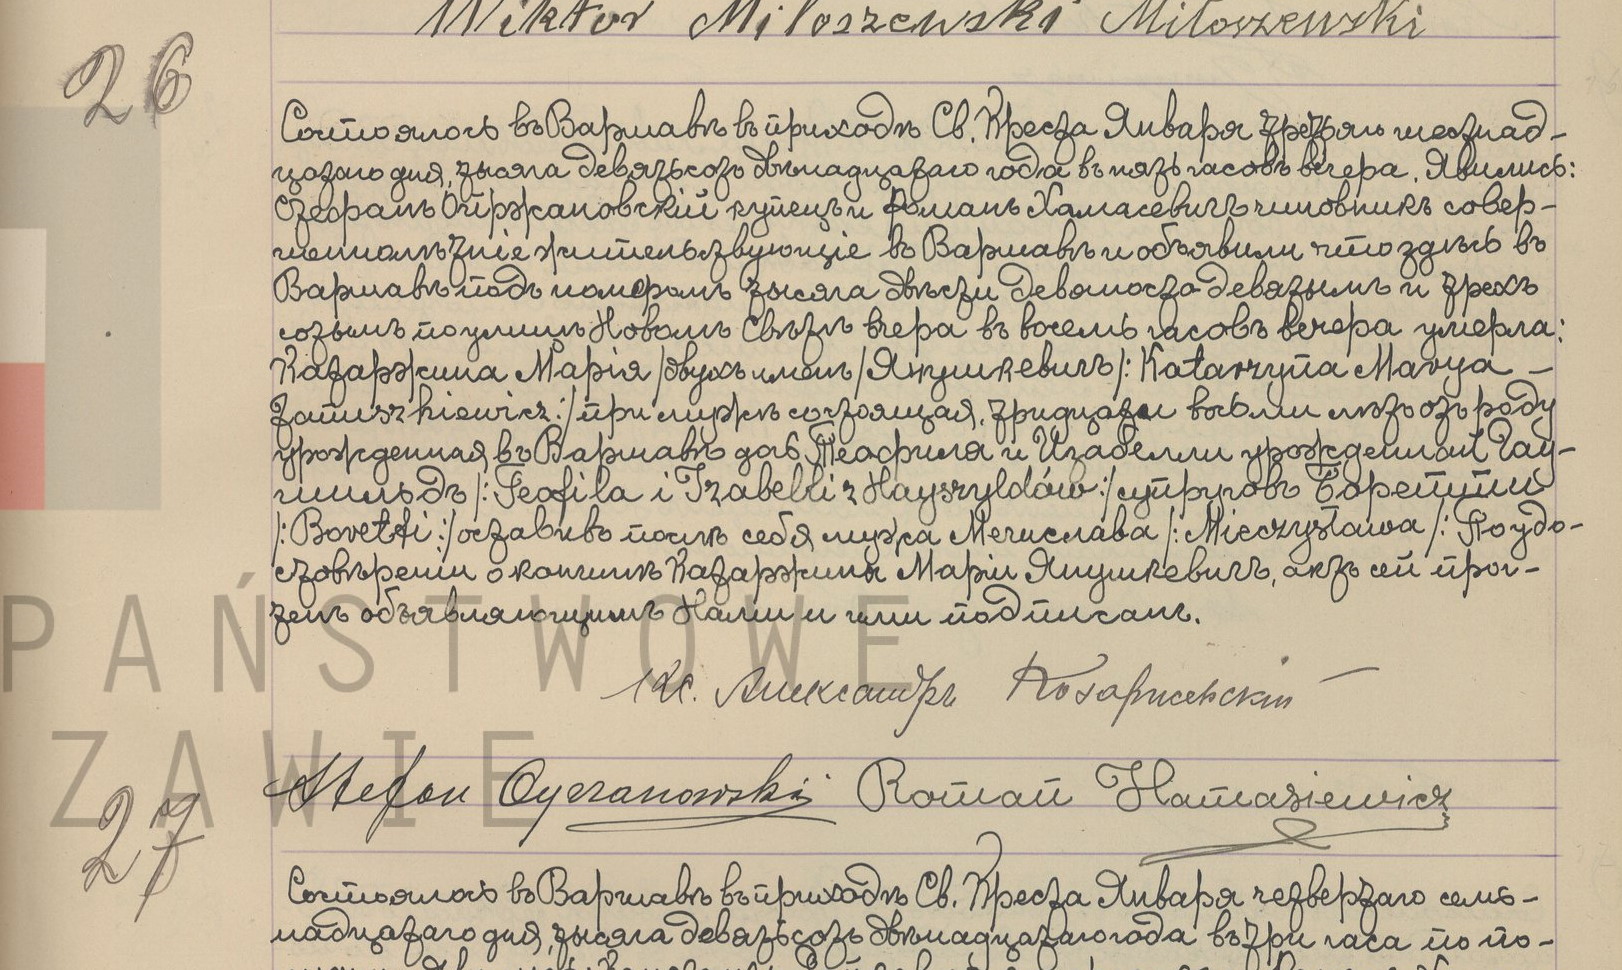 Wiktor Miłoszewski Miłoszewski
26
Состоялось въ Варшавѣ въ приходѣ Св. Креста Января третьяго шестнад-
цатаго дня, тысяча девятьсотъ двѣнадцатаго года въ пять часовъ вечера. Явились:
Стефанъ купецъ и Романъ чиновникъ совер-
шеннолѣтніе жительствующіе въ Варшавѣ и объявили что здѣсь въ
Варшавѣ подъ номеромъ тысяча двѣсти девяносто девятымъ и трех
сотымъ по улицѣ Новомъ Свѣтѣ вчера въ восемь часовъ вечера умерла:
Катаржина Марія /двухъ именъ/ Янушкевичъ /: Katarzyna Marya -
Januszkiewicz :/ при мужѣ состоящая, тридцати восьми лѣтъ отъ роду
урожденная въ Варшавѣ дочь Теофиля и Изабелли урожденной Гау-
шильдъ /: Teofila i Izabelli z Hayszyldów :/ супруговъ Боретти
/: Boretti :/ оставивъ послѣ себя мужа Мечислава /: Mieczysława /: По удо-
стовѣреніи о кончинѣ Катаржины Маріи Янушкевичъ, актъ сей проч-
тенъ объявляющимъ Нами и ими подписанъ.
Кс. Александръ
Stefan Roman
27
Состоялось въ Варшавѣ въ приходѣ Св. Креста Января четвертаго семь-
надцатаго дня, тысяча девятьсотъ двѣнадцатаго года въ три часа по по-
PAŃSTWOWE
ZAWIE